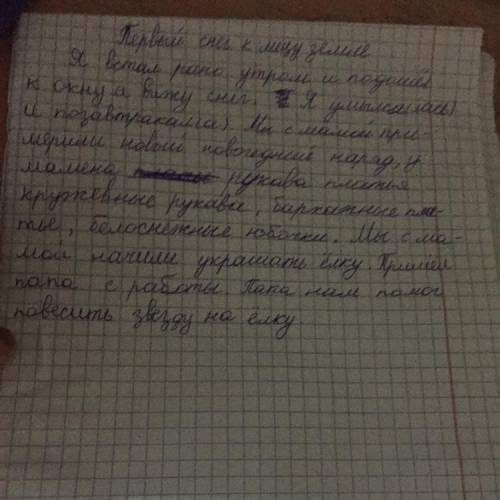 Первый снег к лицу земле
Я встал рано утром и подошёл
к окну и вижу снег. Я умылся(лась)
и позавтракал(а). Мы с мамой при-
мерили новый новогодний наряд, у
мамена рукава платья
кружевные рукава, бархатные пла-
тье, белоснежные юбочки. Мы с ма-
мой начили украшать ёлку. Пришёл
папа с работы. Папа нам помог
повесить звезду на ёлку.